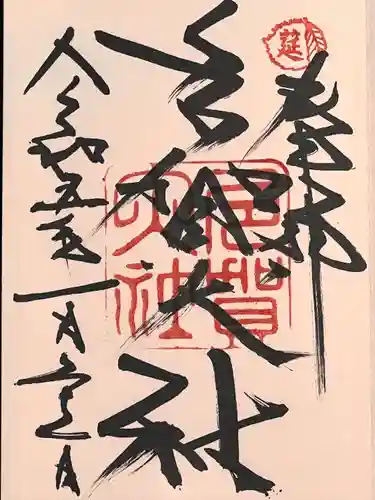 莚
奉拝
多賀大社
多賀大社
令和五年一月 日